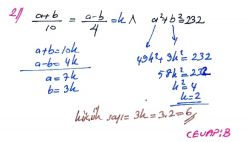 2// (a+b)/10 = (a-b)/4 = k ∧ a²+b²=232
a+b=10k
a-b=4k
a=7k
b=3k
49k²+9k²=232
58k²=232
k²=4
k=2
küçük sayı = 3k = 3.2 = 6
CEVAP: B